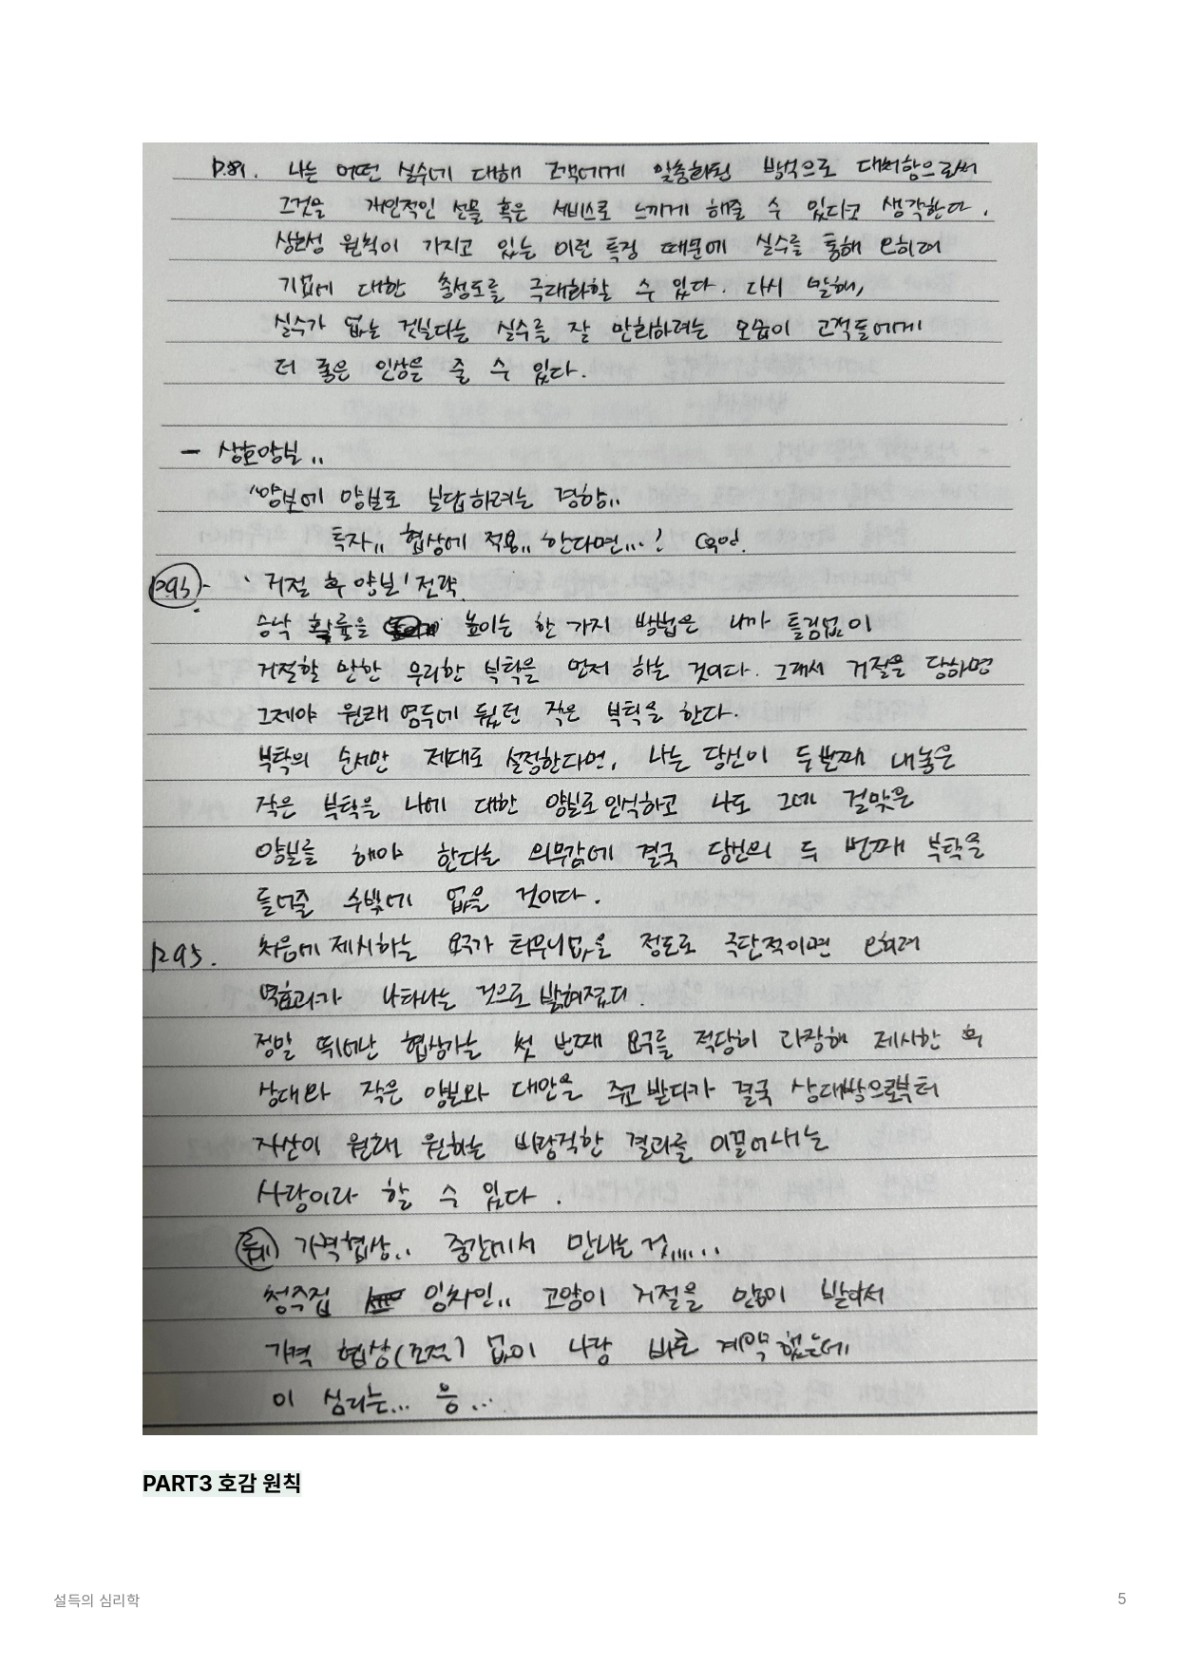 P.81. 나는 어떤 실수에 대해 고객에게 맞춤화된 방식으로 대처함으로써
그것을 개인적인 선물 혹은 서비스로 느끼게 해줄 수 있다고 생각한다.
상호성 원칙이 가지고 있는 이런 특징 때문에 실수를 통해 오히려
기업에 대한 충성도를 극대화할 수 있다. 다시 말해,
실수가 없는 것보다는 실수를 잘 만회하려는 모습이 고객들에게
더 좋은 인상을 줄 수 있다.
- 상호양보..
"양보에 양보로 보답하려는 경향..
독자.. 협상에 적용.. 한다면...!
P.93 - '거절 후 양보' 전략.
승낙 확률을 높이는 한 가지 방법은 내가 틀림없이
거절할 만한 무리한 부탁을 먼저 하는 것이다. 그래서 거절을 당하면
그제야 원래 염두에 뒀던 작은 부탁을 한다.
부탁의 순서만 제대로 설정한다면, 나는 당신이 두 번째 내놓은
작은 부탁을 나에 대한 양보로 인식하고 나도 그에 걸맞은
양보를 해야 한다는 의무감에 결국 당신의 두 번째 부탁을
들어줄 수밖에 없을 것이다.
P.95. 처음에 제시하는 요구가 터무니없을 정도로 극단적이면 오히려
역효과가 나타나는 것으로 밝혀졌다.
정말 뛰어난 협상가는 첫 번째 요구를 적당히 과장해 제시한 후
상대와 작은 양보와 대안을 주고 받다가 결국 상대방으로부터
자신이 원래 원하는 바람직한 결과를 이끌어내는
사람이라 할 수 있다.
가격협상.. 중간에서 만나는 것......
청주집 임차인.. 고양이 거절을 많이 받아서
가격 협상(조정) 없이 나랑 바로 계약 했는데
이 심리는... 음...
PART3 호감 원칙
설득의 심리학
5